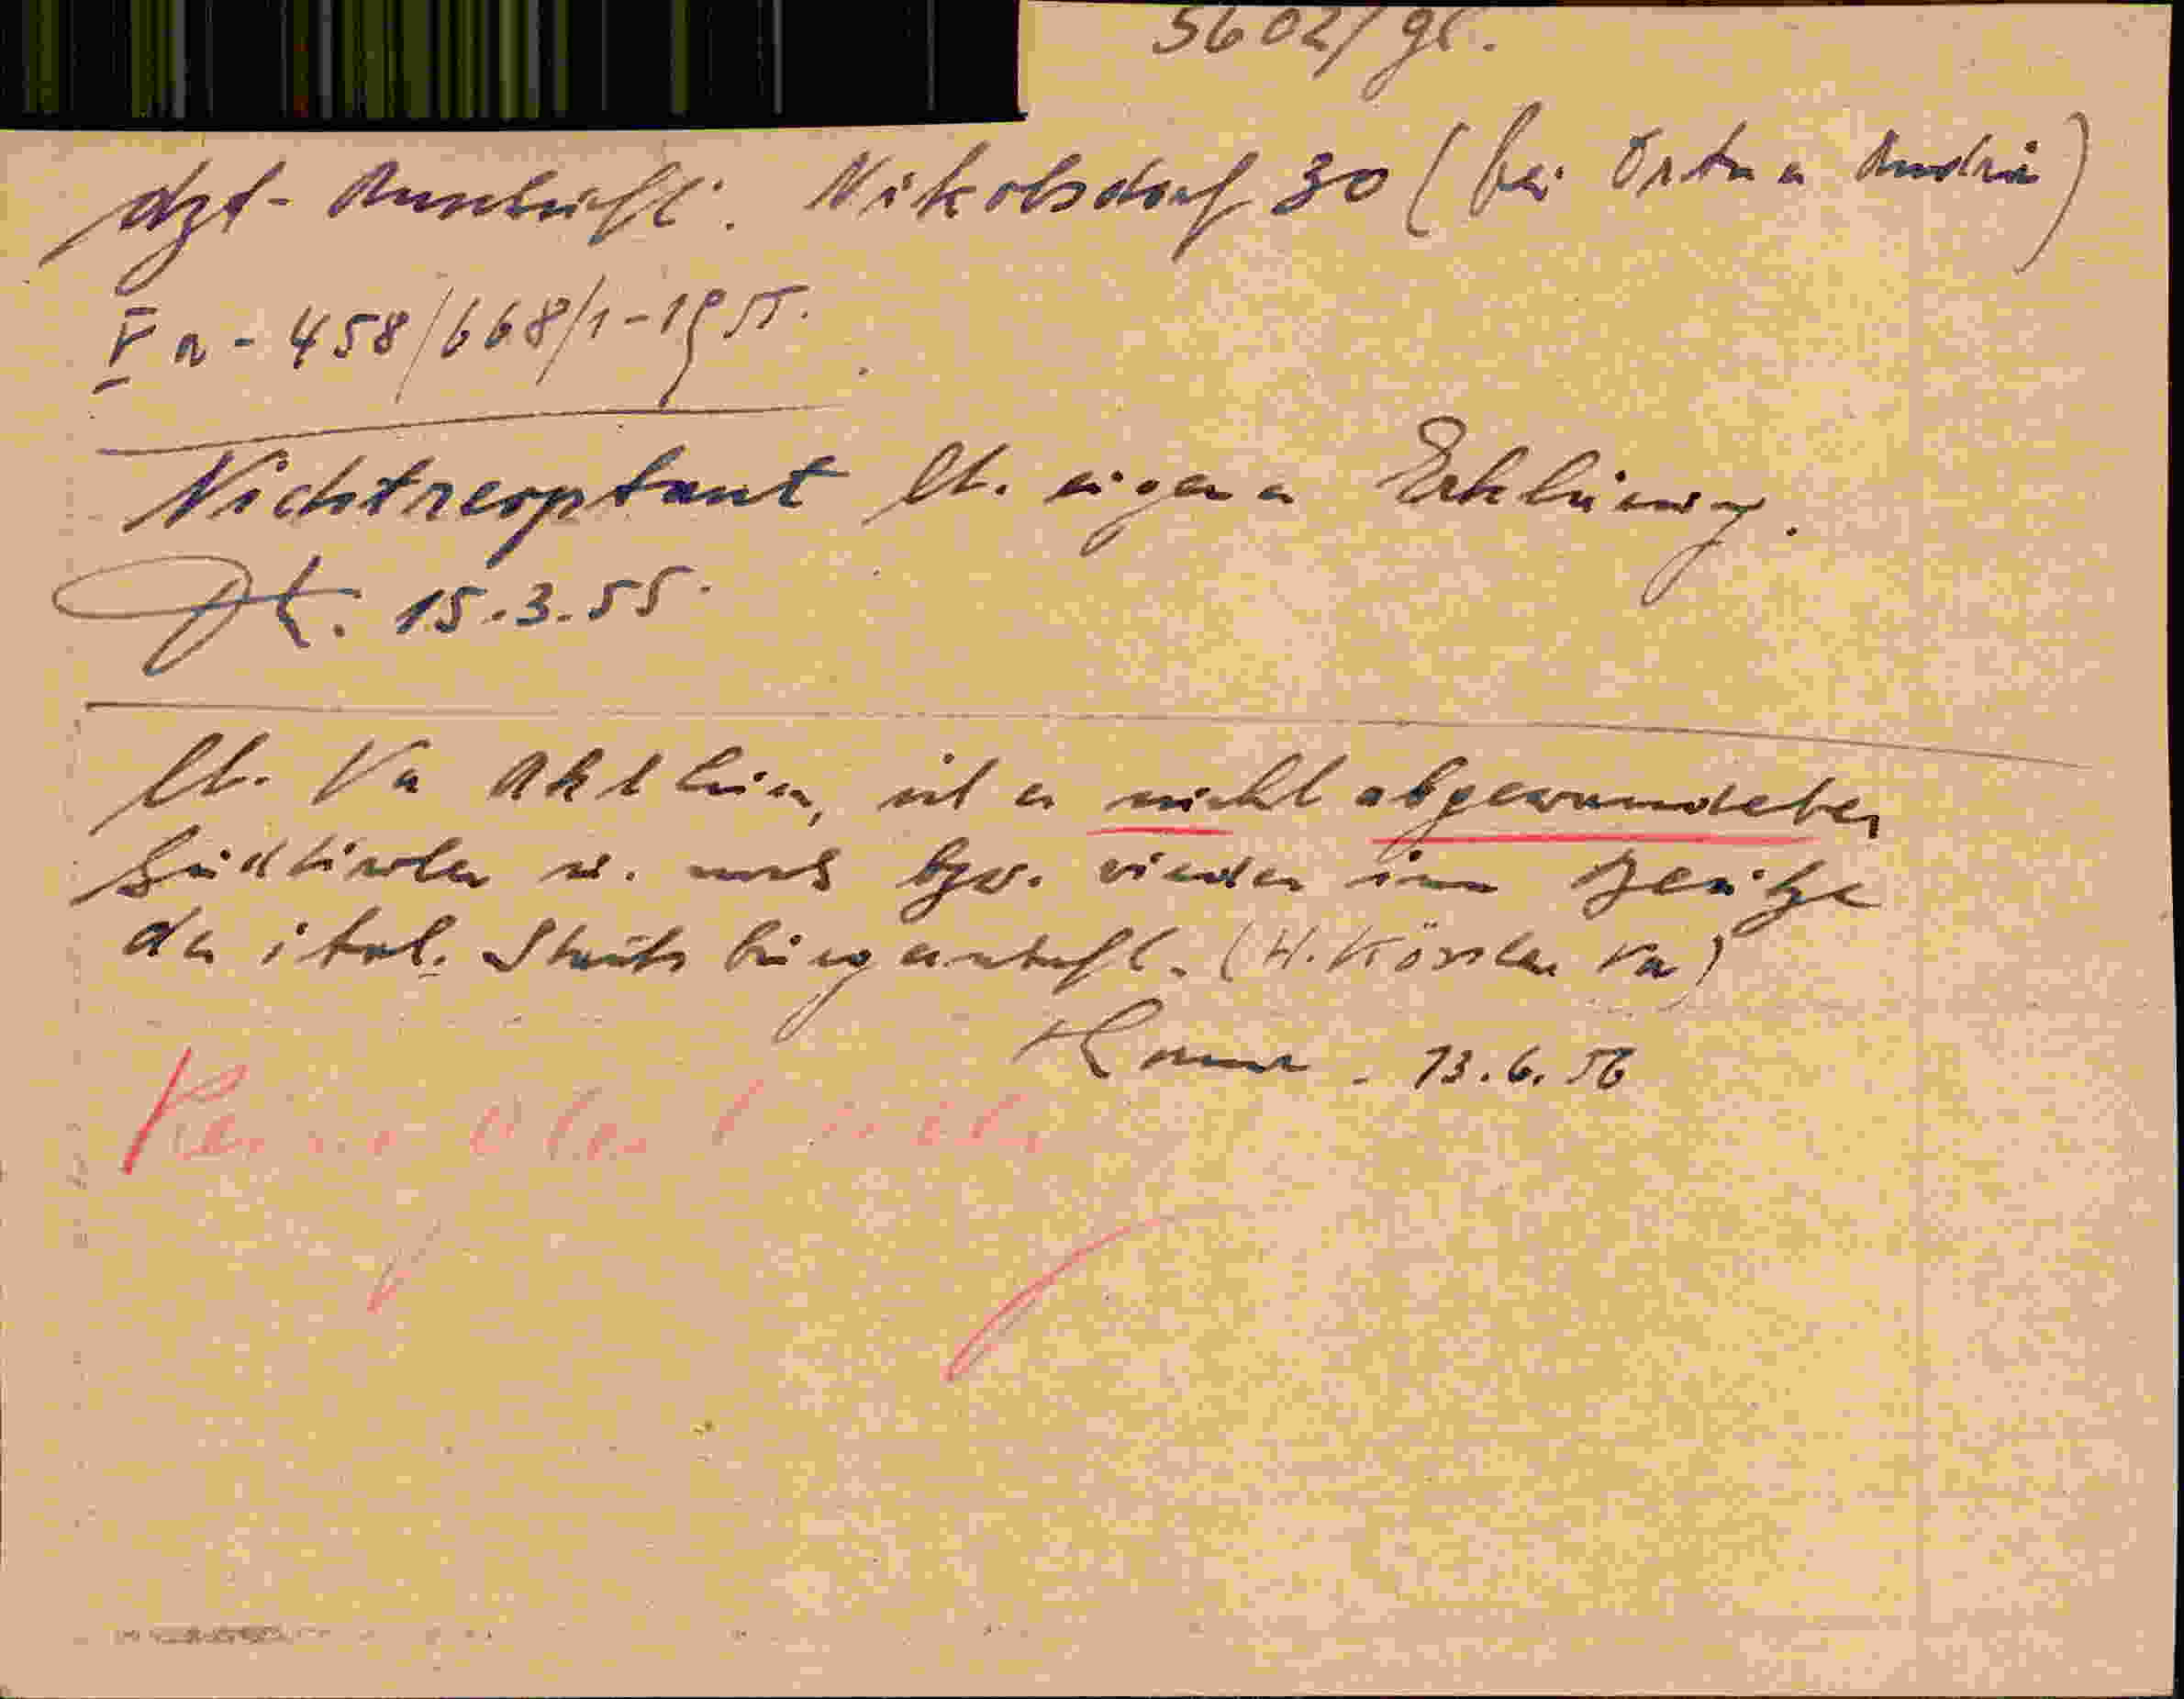 5602/gl.
dzt. Anschrift: Nikolsdorf 30 (bei Ortner Andrä)
Va - 458/668/1-1955.
Nichtreoptant lt. eigener Erklärung.
15.3.55.
lt. Va Aktlein, ist er nicht abgewandeter
Südtiroler u. noch bzw. wieder im Besitze
der ital. Staatsbürgerschft. (H. Kössler Va)
13.6.56